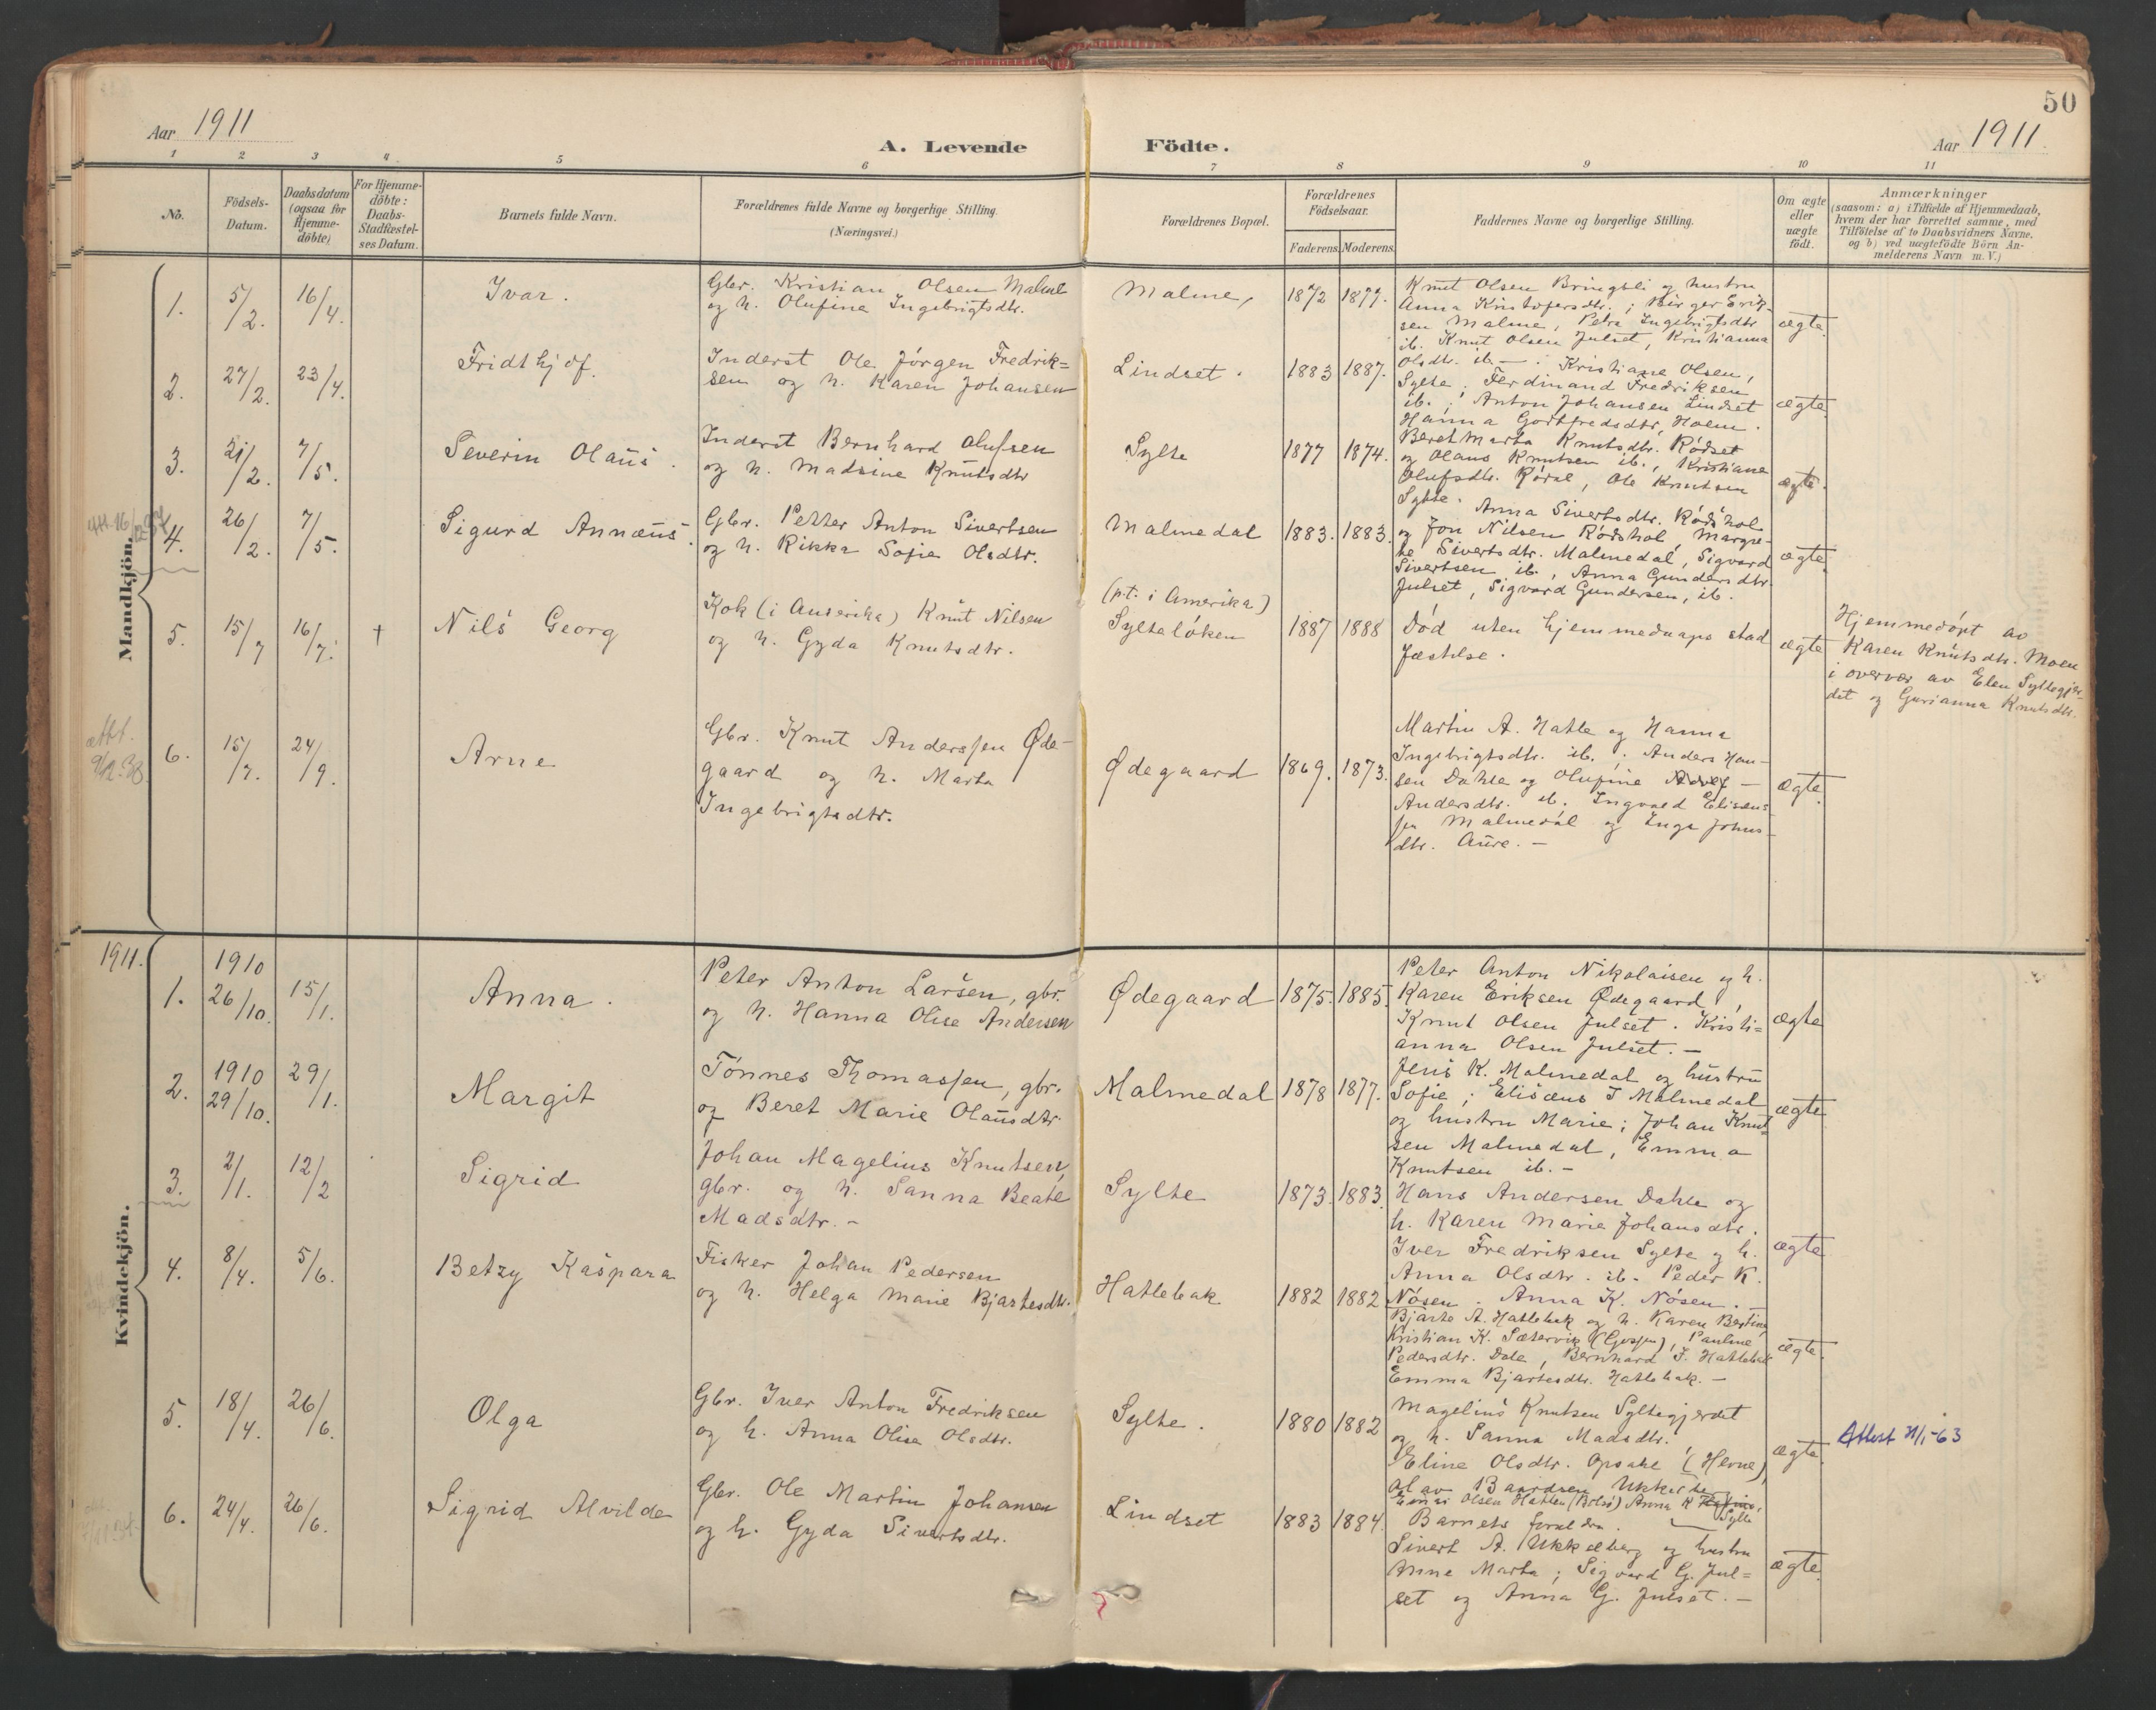 50
Aar 1911
A. Levende Födte.
Aar 1911.
1 2 3 4 5 6 7 8 9 10 11
No.
Födsels-
Datum.
Daabsdatum
(ogsaa for
Hjemme-
döbte)
For Hjemme-
döbte:
Daabs-
Stadfæstel-
ses Datum.
Barnets fulde Navn.
Forældrenes fulde Navne og borgerlige Stilling.
(Næringsvei.)
Forældrenes Bopæl.
Forældrenes
Födselsaar.
Faderens. Moderens.
Faddernes Navne og borgerlige Stilling.
Om ægte
eller
uægte
födt.
Anmærkninger
(saasom: a) i Tilfælde af Hjemmedaab,
hvem der har forrettet samme, med
Tilföielse af to Daabsvidners Navne.
og b) ved uægtefödte Börn An-
melderens Navn m.V.)
Mandkjön.
1. 5/2. 16/4. Ivar.
Gbr. Kristian Olsen Malme
og h. Olufine Ingebrigtsdtr.
Malme, 1872 1877.
Knut Olsen Bringsli og hustru
Anna Kristofersdtr.; Birger Erik-
sen Malme, Petra Ingebrigtsdtr
ib. Knut Olsen Julset, Kristianna
Olsdtr. ib. —
ægte.
2. 27/2. 23/4. Fridthjof.
Inderst Ole Jörgen Fredrik=
sen og h. Karen Johansen
Lindset. 1883 1887.
Kristiane Olsen,
Sylte; Ferdinand Fredriksen
ib.; Anton Johansen Lindset
Hanna Gottfredsdtr, Hoem.
ægte.
3. 21/2. 7/5. Severin Olaus.
Inderst Bernhard Olufsen
og h. Madsine Knutsdtr
Sylte 1877 1874.
Beret Marta Knutsdtr. Rödset
og Olaus Knutsen ib., Kristiane
Olufsdtr. , Ole Knutsen
Sylte.
ægte.
4. 26/2. 7/5. Sigurd Annæus.
Gbr. Petter Anton Sivertsen
og h. Rikka Sofie Olsdtr.
Malmedal 1883. 1883.
Anna Sivertsdtr. Rödshol
og Jon Nilsen Rödshol, Margre-
te Sivertsdtr. Malmedal, Sigvard
Sivertsen ib., Anna Gundersdtr.
Julset, Sigvard Gundersen, ib.
ægte.
5. 15/7 16/7. † Nils Georg
Kok (i Amerika) Knut Nilsen
og h. Gyda Knutsdtr.
(p.t. i Amerika)
Syltelöken 1887 1888
Död uten hjemmedaaps stad
fæstelse.
ægte
Hjemmedöpt av
Karen Knutsdtr. Moen
i overvær av Elen Syltegjer-
det og Gurianna Knutsdtr.
6. 15/7. 24/9. Arne
Gbr. Knut Anderssen Øde-
gaard og h. Marta
Ingebrigtsdtr.
Ødegaard 1869. 1873.
Martin A. Hatle og Hanna
Ingebrigtsdtr. ib.; Anders Han-
sen Dahle og Olufine
Andersdtr. ib. Ingvald Elisæus
sen Malmedal og Inga Johns-
dtr. Aure. —
ægte.
1911.
Kvindekjön.
1. 1910 26/10. 15/1. Anna.
Peter Anton Larsen, gbr.
og h. Hanna Olise Andersen
Ødegaard 1875. 1885.
Peter Anton Nikolaisen og h.
Karen Eriksen Ødegaard,
Knut Olsen Julset. Kristi=
anna Olsen Julset. —
ægte
2. 1910 29/10. 29/1. Margit
Tönnes Thomassen, gbr.
og Beret Marie Olausdtr.
Malmedal 1878 1877.
Jens K. Malmedal og hustru
Sofie; Elisæus T Malmedal
og hustru Marie; Johan Knut-
sen Malmedal, Emma
Knutsen ib. —
ægte
3. 2/1. 12/2 Sigrid
Johan Magelius Knutsen,
gbr. og h. Sanna Beate
Madsdtr. —
Sylte 1873. 1883.
Hans Andersen Dahle og
h. Karen Marie Johansdtr.
Iver Fredriksen Sylte og h.
Anna Olsdtr. ib. Peder K.
Nösen. Anna K. Nösen. —
ægte
4. 8/4. 5/6. Betzy Kaspara
Fisker Johan Pedersen
og h. Helga Marie Bjartesdtr.
Hatlebak 1882 1882
Bjarte A. Hatlebak og h. Karen Bertine
Kristian K. Sætervik (Gossen), Pauline
Pedersdtr. Dale, Bernhard J. Hatlebak
Emma Bjartesdtr. Hatlebak. —
ægte.
5. 18/4. 26/6. Olga
Gbr. Iver Anton Fredriksen
og h. Anna Olise Olsdtr.
Sylte. 1880 1882
Magelius Knutsen Syltegjerdet
og h. Sanna Madsdtr.
Eline Olsdtr. Opsahl (Hevne)
Olav Baardsen
Einar Olsen Hatlen (Bolsö) Anna K
Sylte
Barnets foreldre.
ægte.
Attest 21/1-63
6. 24/4. 26/6. Sigrid Alvilde
Gbr. Ole Martin Johansen
og h. Gyda Sivertsdtr.
Lindset 1883 1884.
Sivert A. Ukkelberg og hustru
Anne Marta; Sigvard G. Jul=
set og Anna G. Julset. —
ægte.